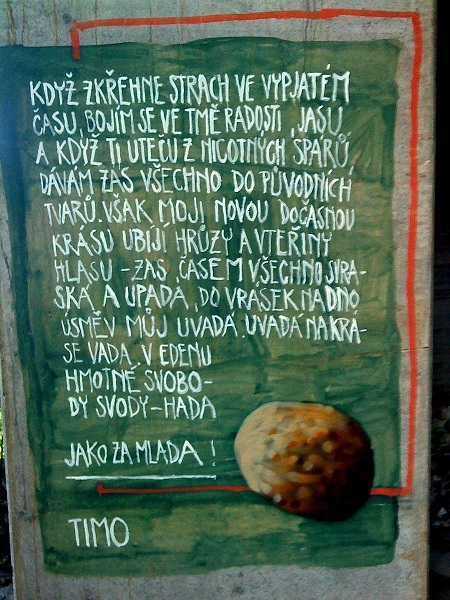 KDYŽ ZKŘEHNE STRACH VE VYPJATÉM
ČASU, BOJÍM SE VE TMĚ RADOSTI, JASU,
A KDYŽ TI UTEČU Z NICOTNÝCH SPÁRŮ,
DÁVÁM ZAS VŠECHNO DO PŮVODNÍCH
TVARŮ. VŠAK MOJI NOVOU DOČASNOU
KRÁSU UBIJÍ HRŮZY A VTEŘINY
HLASU – ZAS ČASEM VŠECHNO SVRA-
SKÁ A UPADÁ, DO VRÁSEK NA DNO
ÚSMĚV MŮJ UVADÁ. UVADÁ NA KRÁ-
SE VADA, V EDENU
HMOTNÉ SVOBO-
DY SVODY – HADA
JAKO ZA MLADA!
TIMO